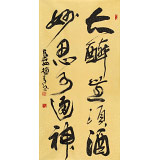 大醉豈須酒
妙思可通神